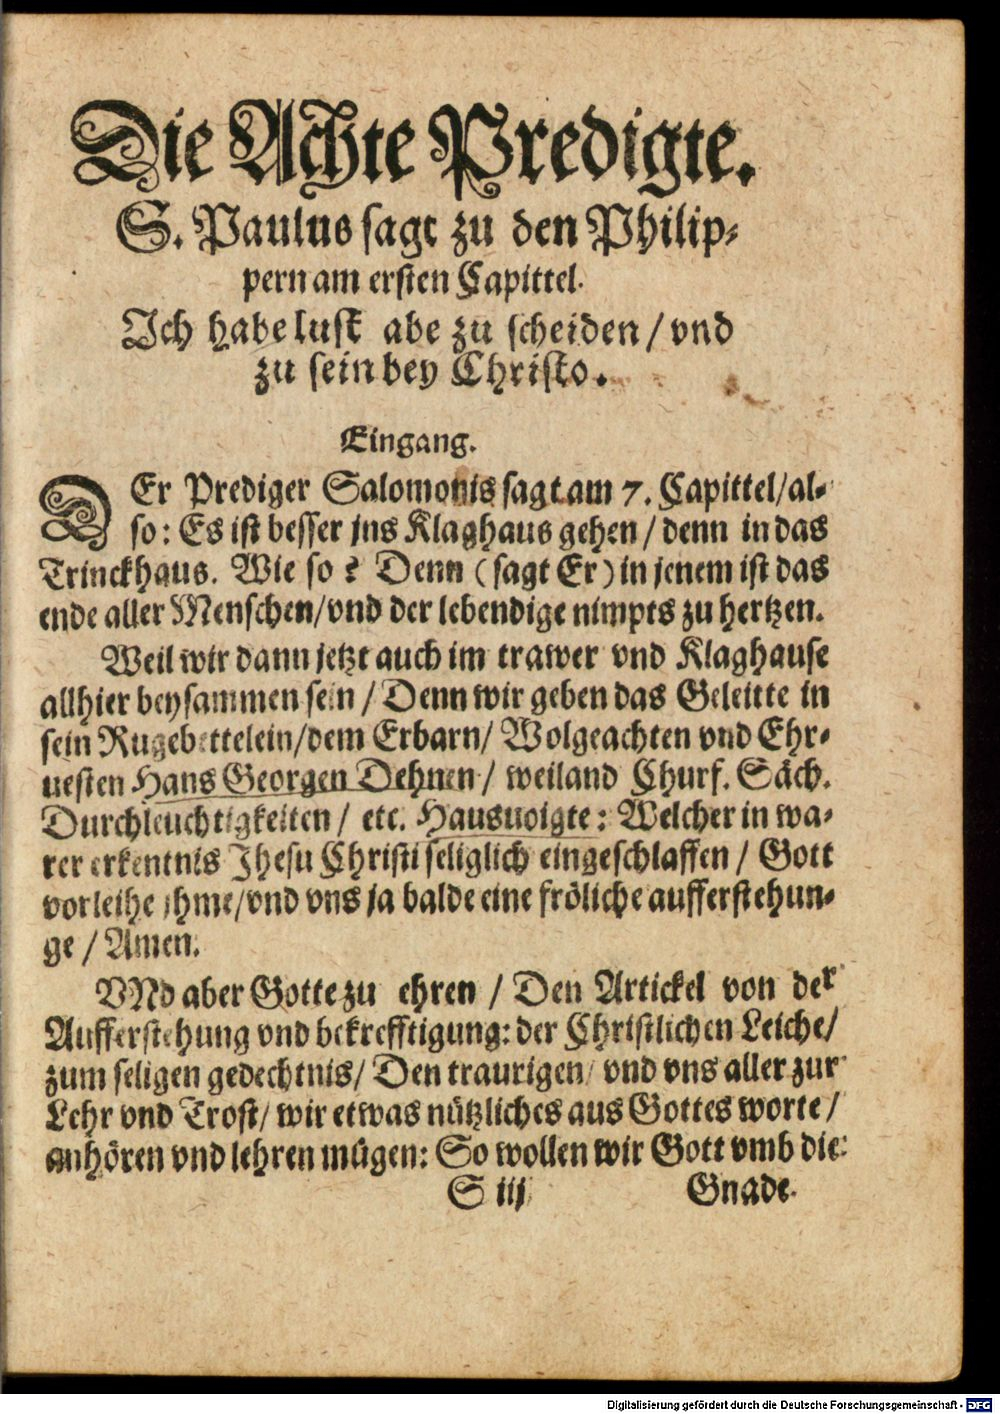 Die Achte Predigte.
S. Paulus sagt zu den Philip⸗
pern am ersten Capittel.
Ich habe lust abe zu scheiden / vnd
zu sein bey Christo.
Eingang.
DEr Prediger Salomonis sagt am 7. Capittel / al⸗
so: Es ist besser jns Klaghaus gehen / denn in das
Trinckhaus. Wie so? Denn (sagt Er) in jenem ist das
ende aller Menschen / vnd der lebendige nimpts zu hertzen.
Weil wir dann jetzt auch im trawer vnd Klaghause
allhier beysammen sein / Denn wir geben das Geleitte in
sein Rugebettelein / dem Erbarn / Wolgeachten vnd Ehr⸗
uesten Hans Georgen Dehnen / weiland Churf. Säch.
Durchleuchtigkeiten / etc. Hausuoigte: Welcher in wa⸗
rer erkentnis Jhesu Christi seliglich eingeschlaffen / Gott
vorleihe jhme / vnd vns ja balde eine fröliche aufferstehun⸗
ge / Amen.
VNd aber Gotte zu ehren / Den Artickel von der
Aufferstehung vnd bekrefftigung: der Christlichen Leiche /
zum seligen gedechtnis / Den traurigen / vnd vns aller zur
Lehr vnd Trost / wir etwas nützliches aus Gottes worte /
anhören vnd lehren mügen: So wollen wir Gott vmb die
S iij
Gnade.
Digitalisierung gefördert durch die Deutsche Forschungsgemeinschaft - DFG